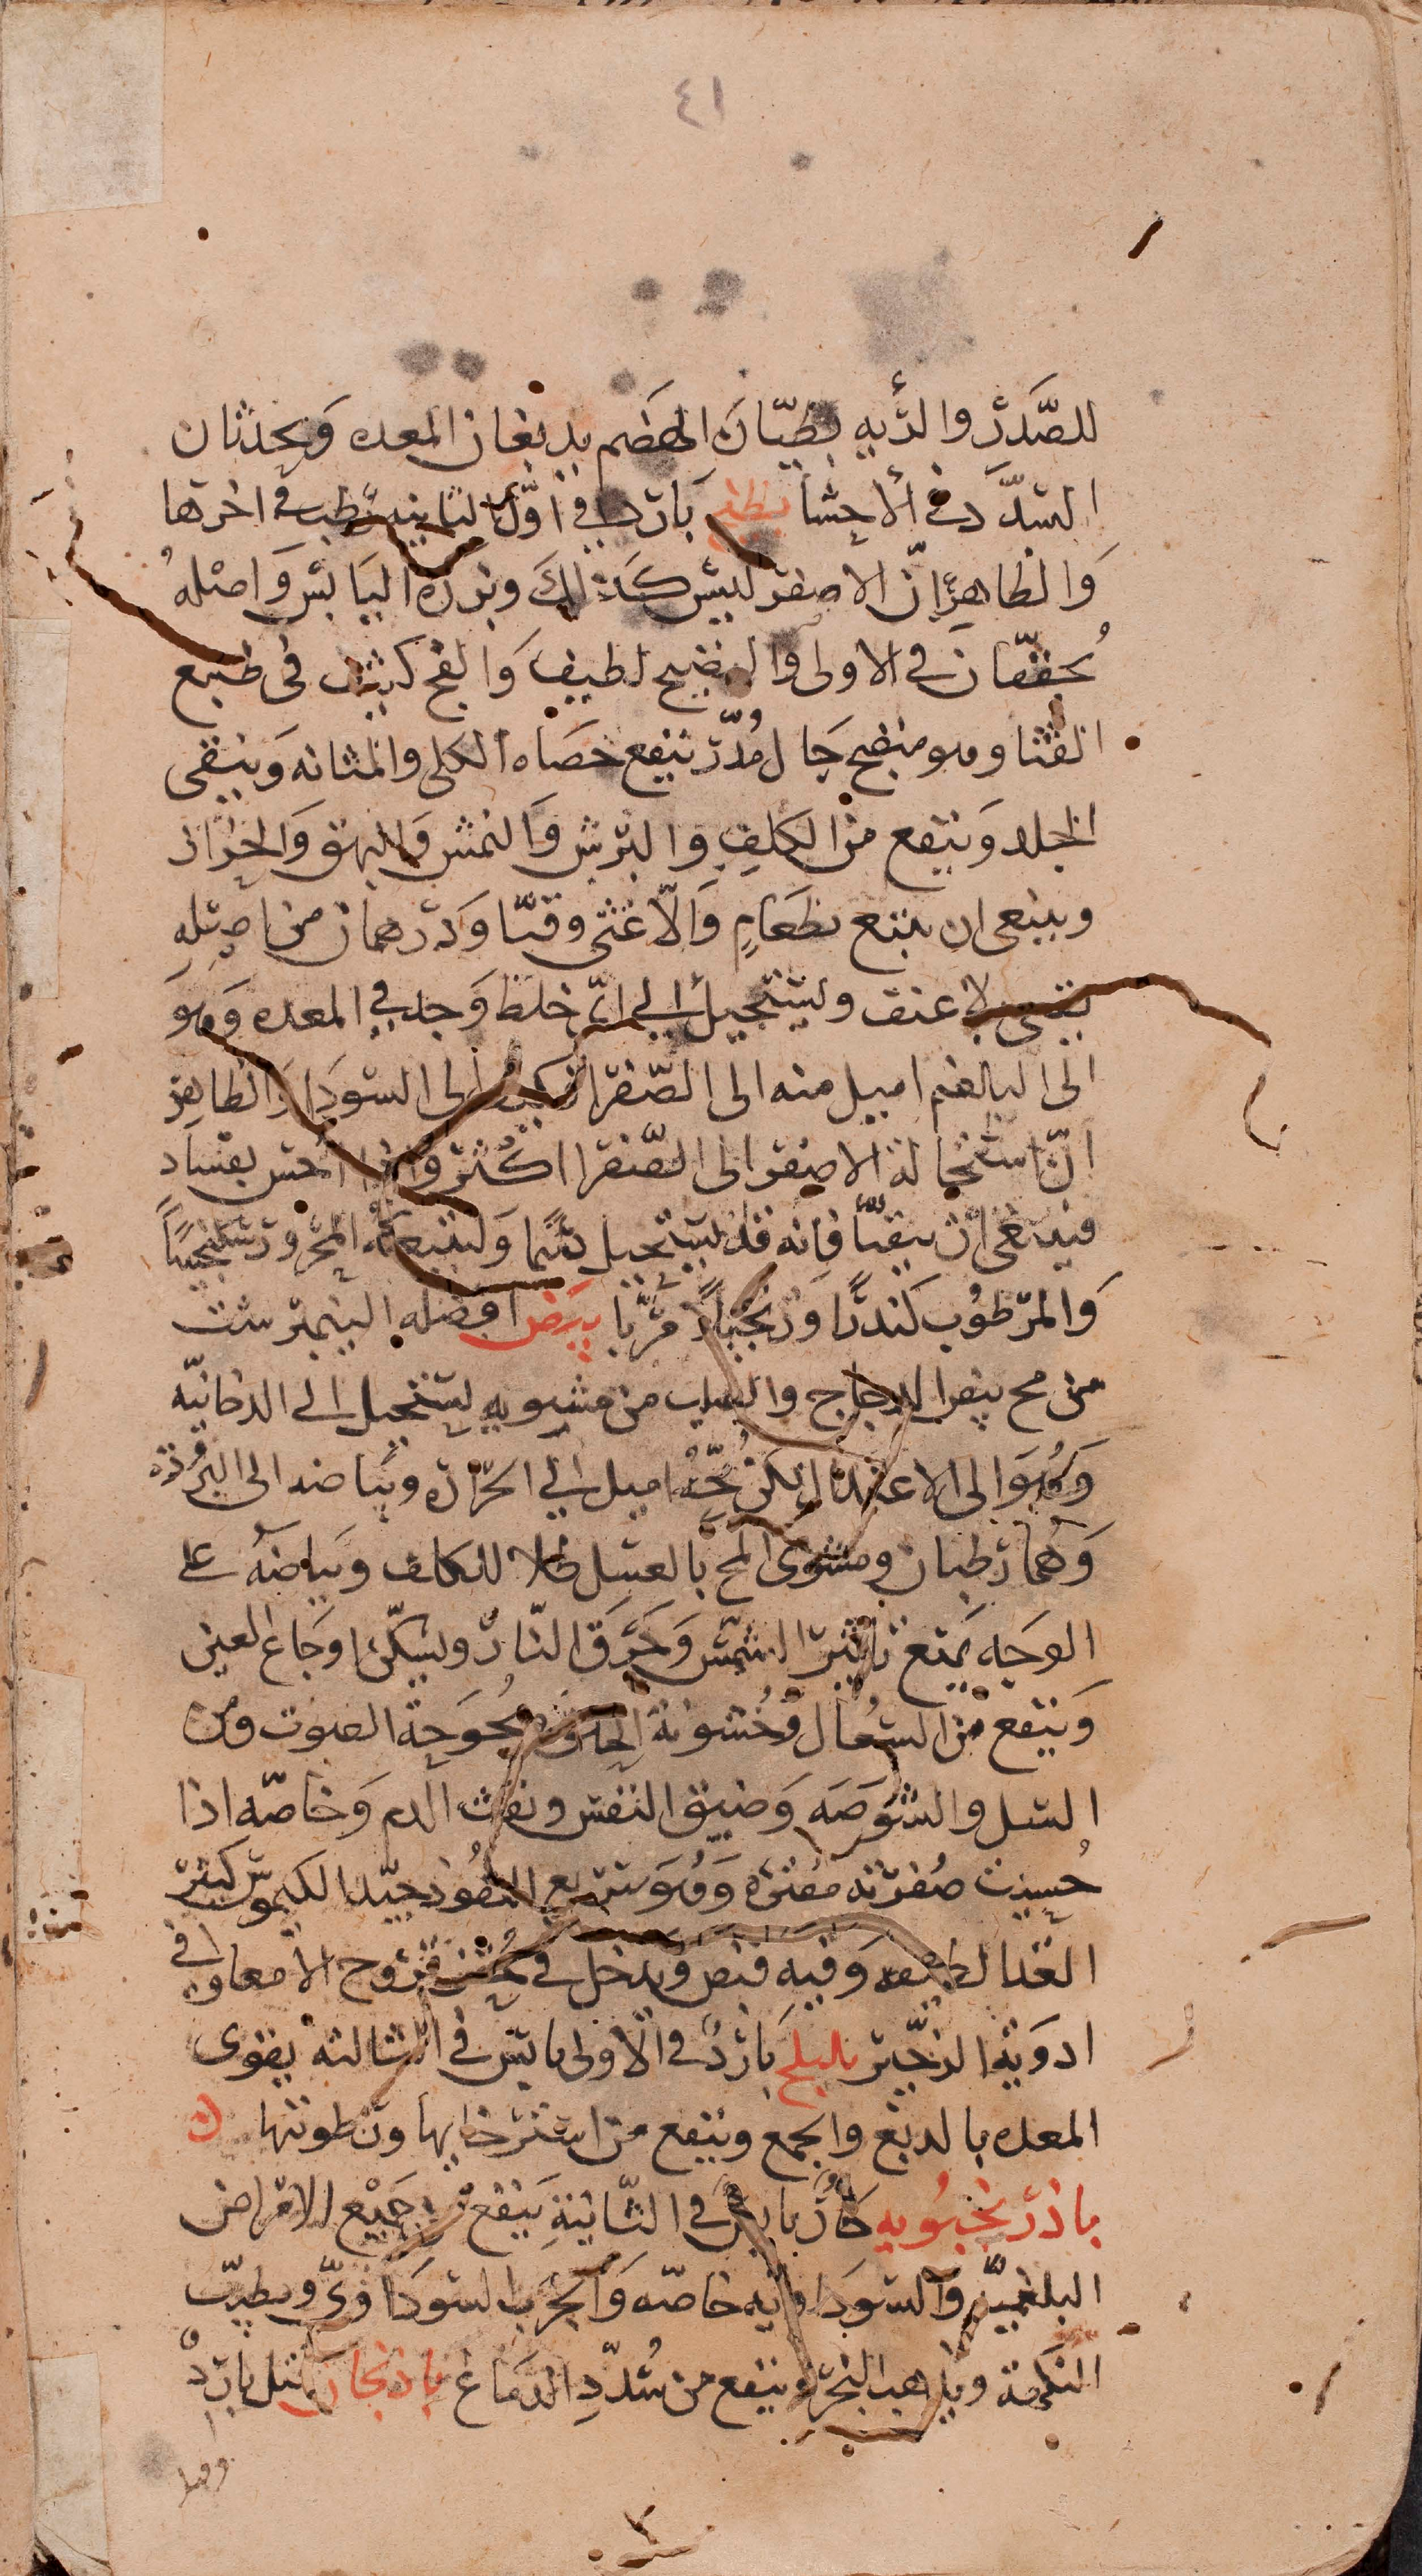 ٤١
للصَّدر والرّيه بطيّان الهضم يدبغان المعده وَيحدثان
السّدَد في الاحشا بطيخ بَارد في اوّل الثانيه رطب في اخرها
وَالظاهر انّ الاصفر ليس كذلكَ وبزره اليَابس وَاصله
مُجففان في الاولى والنضيج لطيف وَالفج كثيف في طبع
القثا وهو منضج جَال مُدرّ ينفع حَصَاه الكلى والمثانه وَينقى
الجلد وَينفع من الكلف والبرش وَالنمش وَالبهق وَالحزاز
وينبغى ان يتبع بطعَامٍ وَالّا غثى وقيّا وَدرهمان من اصله
يقيى بلا عنف ويستحيل الى اىّ خلط وَجد في المعده وَهوَ
الى البلغم اميل منه الى الصّفرا فكيف الى السوَدا وَالظاهر
انّ استحالة الاصفر الى الصّفرا اكثر وَاذا احس بفسَاد
فينبغى أن يتقيّأ فانه قد يستحيل سُمّا وَليتبعه المحرور سكنجبيناً
وَالمرطوُب كندرًا وَزنجبيلًا مُربّا بيض افضله النيمرشت
من مح بيض الدجاج والصلب من مشويه يستحيل الى الدخانيّه
وَهُوَ الى الاعتدال لكن مُحّهُ اميل الى الحرَاره وبيَاضه الى البرُوده
وَهُما رطبان ومشوى المح بالعسَل طلا للكلف وبياضهُ على
الوجَه يمَنع تاثير الشمس وَحَرق النّار ويسكّن اوجَاع العين
وَينفع من السُعَال وَخُشونة الحلق وَبُحوَحة الصوَت ومن
السل والشوَصَه وَضيق النفس ونفث الدم وَخاصّه اذا
حُسيت صُفرته مفترَه وَهُوَ سَريع النفوُذ جيّد الكيموس كثير
الغذا لطيفه وَفيه قبض ويَدخل في حُقن قرُوح الامعا وفي
ادوَية الزحَير بليلج بَاردُ في الاولى يابس في الثالثه يقوى
المعده بالدبغ والجمع وينفع من استرخايها ورطوبتها
باذرنجبوُيه حَارّ يابس في الثّانيَة يَنفع من جَميْع الامراض
البلغميّه وَالسوَداويّه خاصّه وَالجَرب السوَداوىّ ويطيّب
النكهة ويذهب البخر وينفع من سُدَدِ الدمَاغ باذنجان قيل باردٌ
وهو